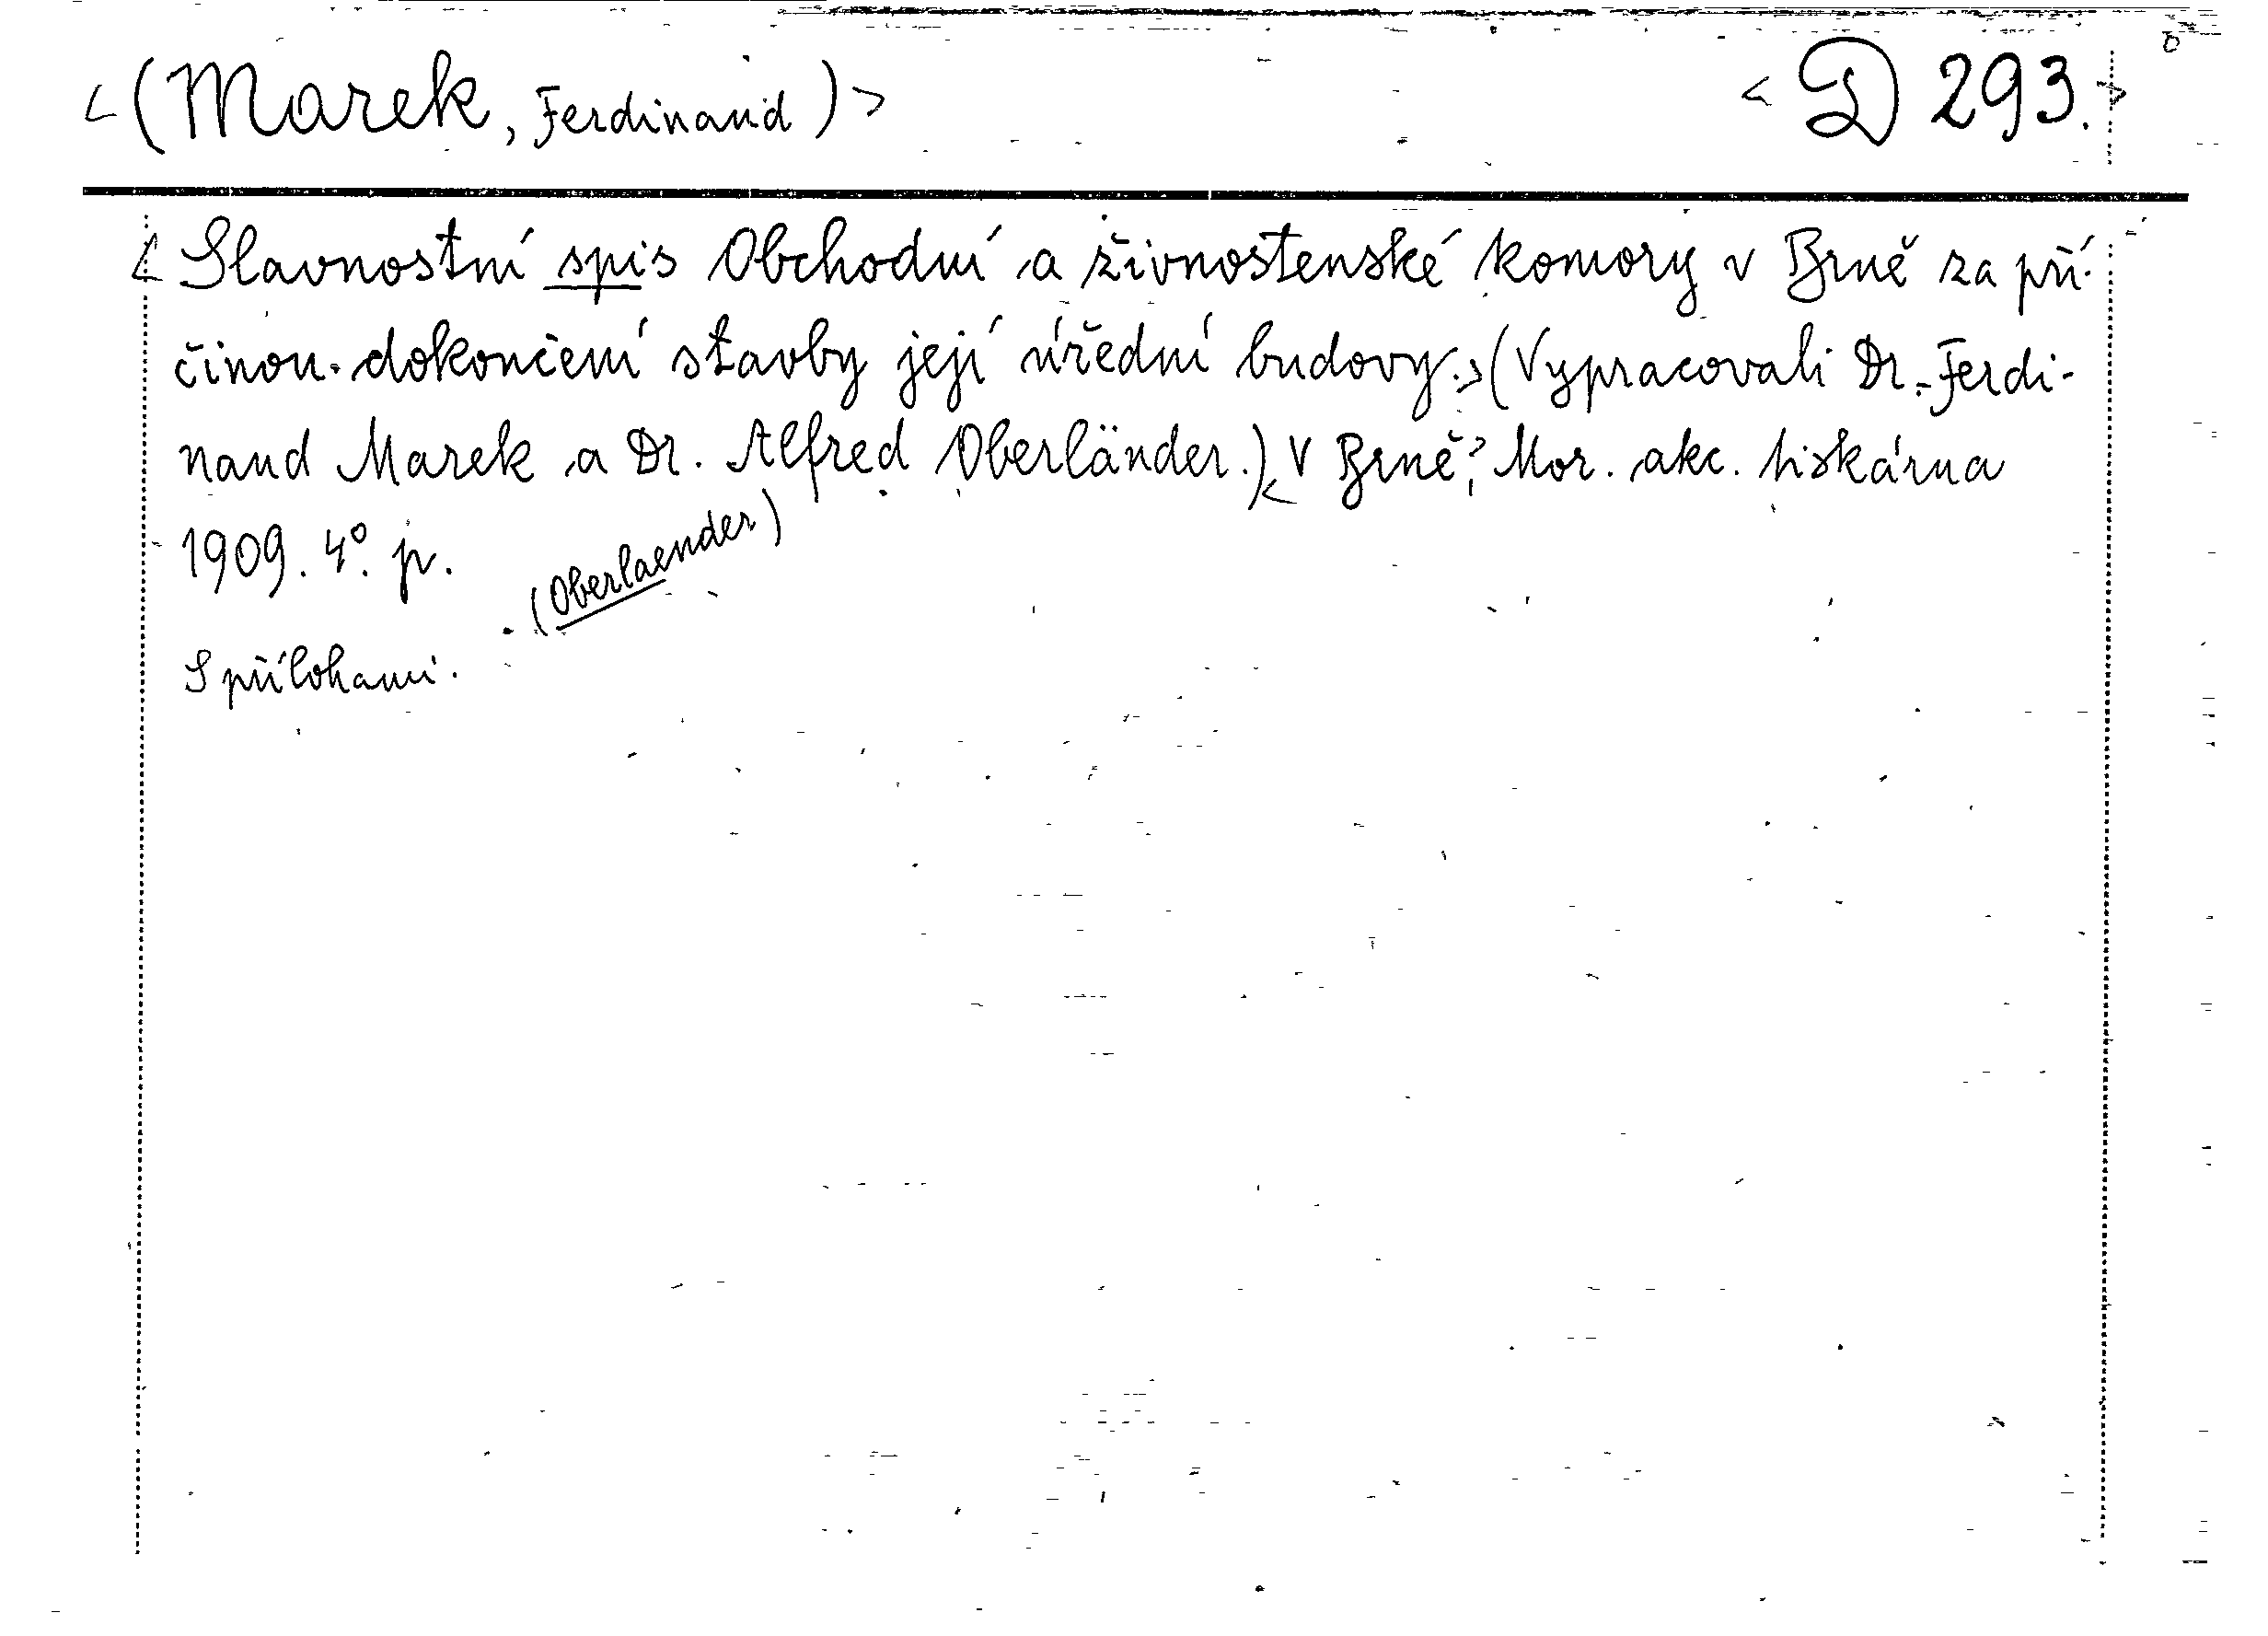 <(Marek, Ferdinand)> <D 293.>
<Slavnostní spis Obchodní a živnostenské komory v Brně za pří-
činou dokončení stavby její úřední budovy.>(Vypracovali Dr. Ferdi-
nand Marek a Dr. Alfred Oberländer.)<V Brně, Mor. akc. tiskárna
1909. 4°. p.
(Oberlaender)
S přílohami.